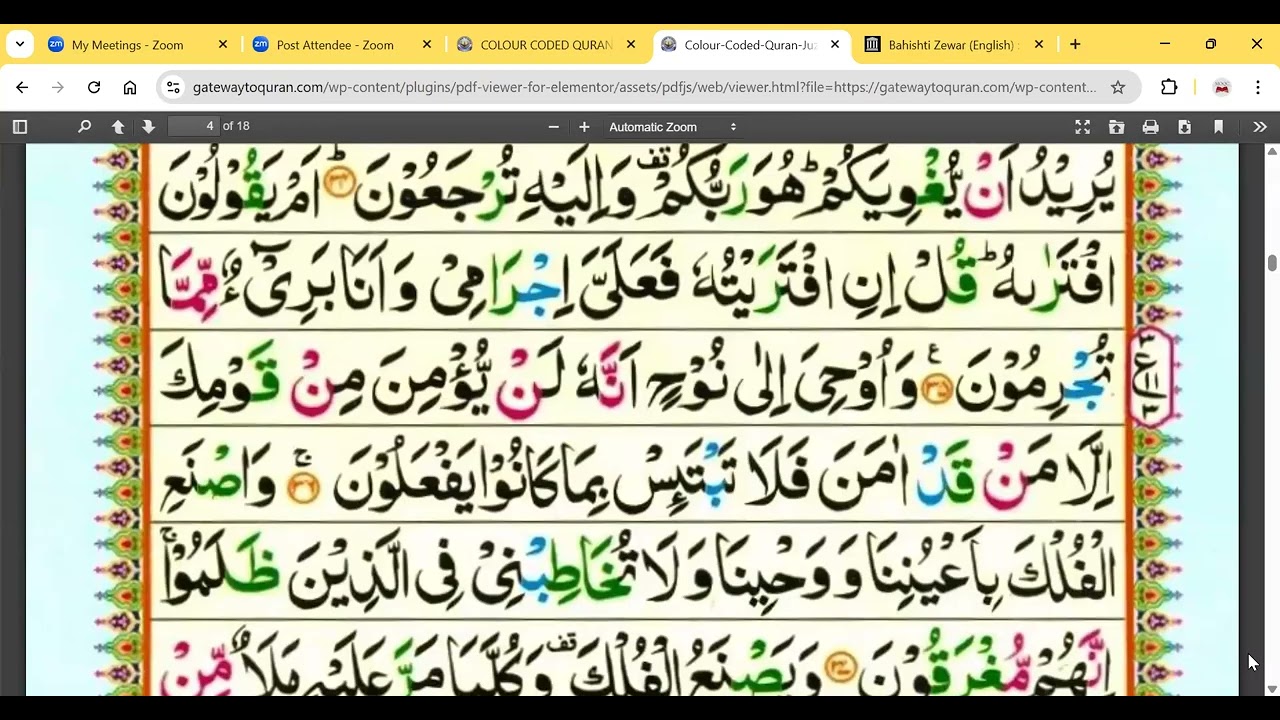 My Meetings - Zoom
Post Attendee - Zoom
COLOUR CODED QURAN
Colour-Coded-Quran-Juz
Bahishti Zewar (English)
gatewaytoquran.com/wp-content/plugins/pdf-viewer-for-elementor/assets/pdfjs/web/viewer.html?file=https://gatewaytoquran.com/wp-content...
4 of 18
Automatic Zoom
يُرِيْدُ اَنْ يُّغْوِيَكُمْ ؕ هُوَ رَبُّكُمْ قف وَاِلَيْهِ تُرْجَعُوْنَ ﴿۳۴﴾ ؕ اَمْ يَقُوْلُوْنَ
افْتَرٰىهُ ؕ قُلْ اِنِ افْتَرَيْتُهٗ فَعَلَىَّ اِجْرَامِىْ وَاَنَا بَرِىْٓءٌ مِّمَّا
تُجْرِمُوْنَ ﴿۳۵﴾ ع وَاُوْحِىَ اِلٰى نُوْحٍ اَنَّهٗ لَنْ يُّؤْمِنَ مِنْ قَوْمِكَ
اِلَّا مَنْ قَدْ اٰمَنَ فَلَا تَبْتَئِسْ بِمَا كَانُوْا يَفْعَلُوْنَ ﴿۳۶﴾ ۚ وَاصْنَعِ
الْفُلْكَ بِاَعْيُنِنَا وَوَحْيِنَا وَلَا تُخَاطِبْنِىْ فِى الَّذِيْنَ ظَلَمُوْا ۚ
اِنَّهُمْ مُّغْرَقُوْنَ ﴿۳۷﴾ وَيَصْنَعُ الْفُلْكَ قف وَكُلَّمَا مَرَّ عَلَيْهِ مَلَاٌ مِّنْ